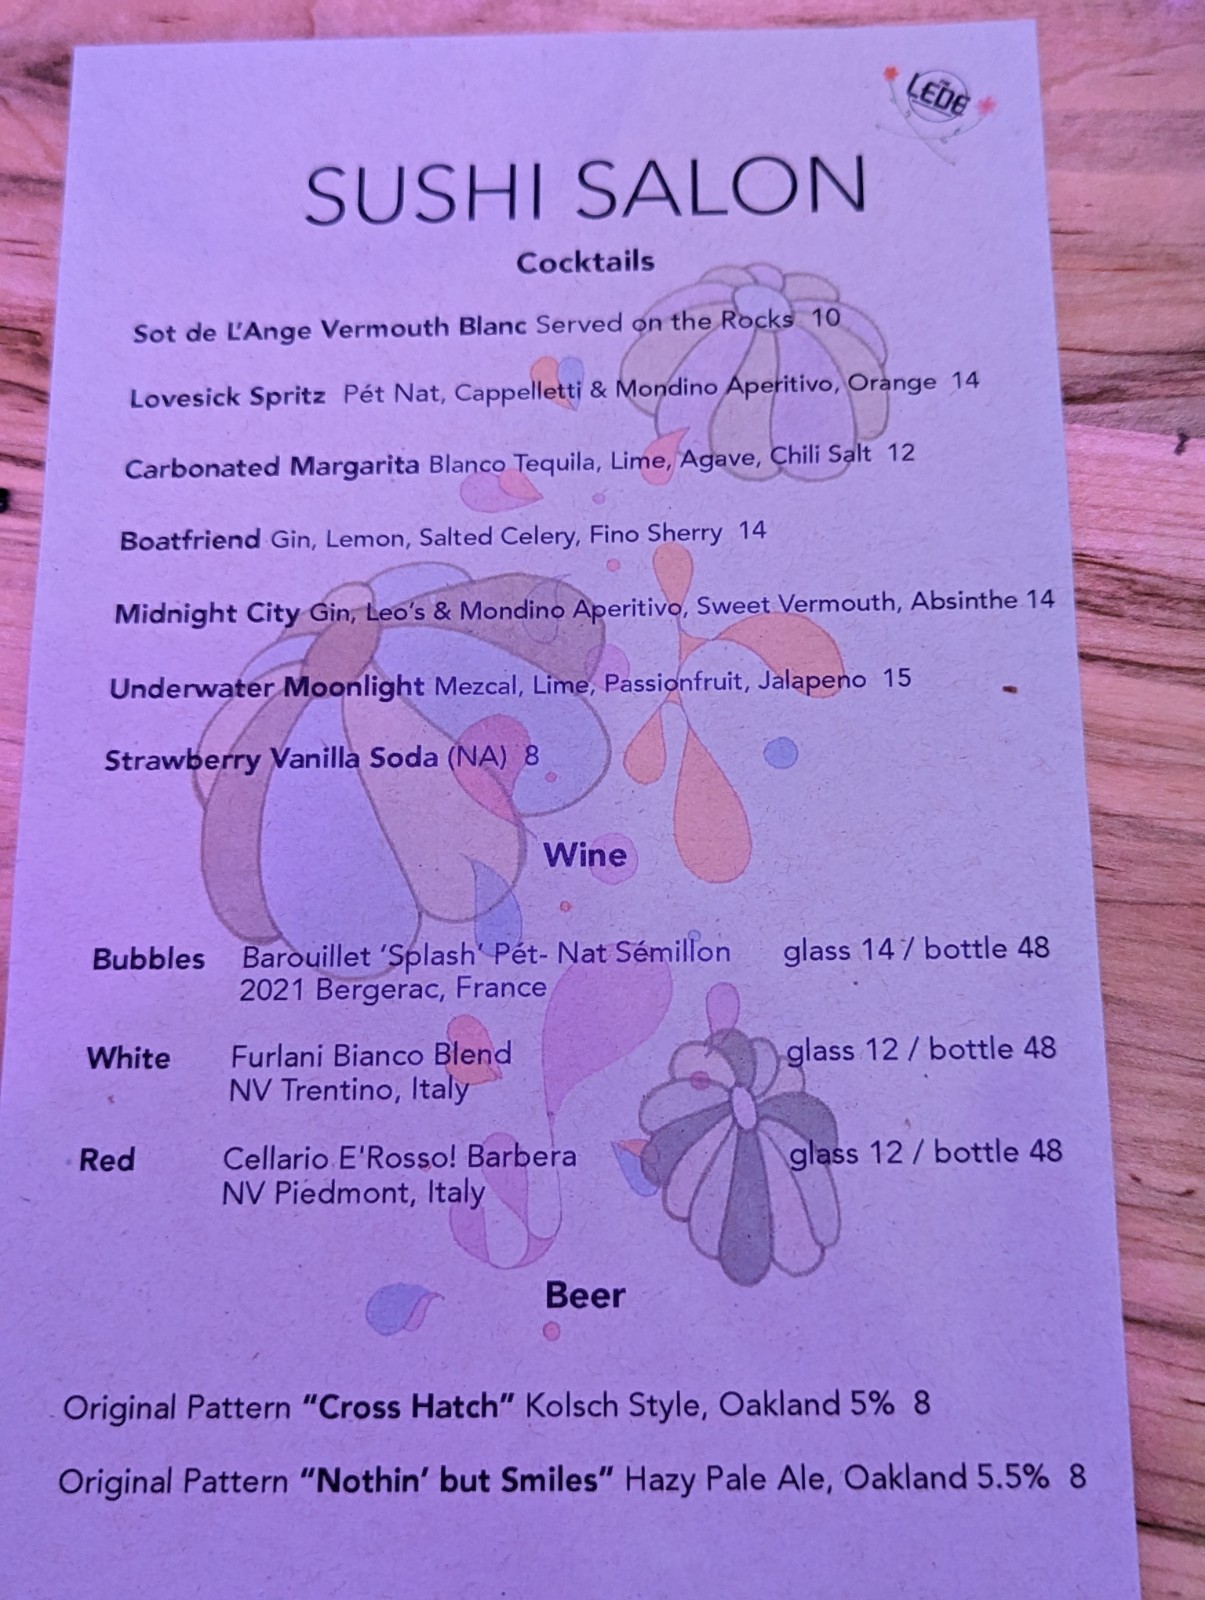 THE
LEDE
SUSHI SALON
Cocktails
Sot de L'Ange Vermouth Blanc Served on the Rocks 10
Lovesick Spritz Pét Nat, Cappelletti & Mondino Aperitivo, Orange 14
Carbonated Margarita Blanco Tequila, Lime, Agave, Chili Salt 12
Boatfriend Gin, Lemon, Salted Celery, Fino Sherry 14
Midnight City Gin, Leo's & Mondino Aperitivo, Sweet Vermouth, Absinthe 14
Underwater Moonlight Mezcal, Lime, Passionfruit, Jalapeno 15
Strawberry Vanilla Soda (NA) 8
Wine
Bubbles Barouillet 'Splash' Pét- Nat Sémillon glass 14 / bottle 48
2021 Bergerac, France
White Furlani Bianco Blend glass 12 / bottle 48
NV Trentino, Italy
Red Cellario E'Rosso! Barbera glass 12 / bottle 48
NV Piedmont, Italy
Beer
Original Pattern "Cross Hatch" Kolsch Style, Oakland 5% 8
Original Pattern "Nothin' but Smiles" Hazy Pale Ale, Oakland 5.5% 8